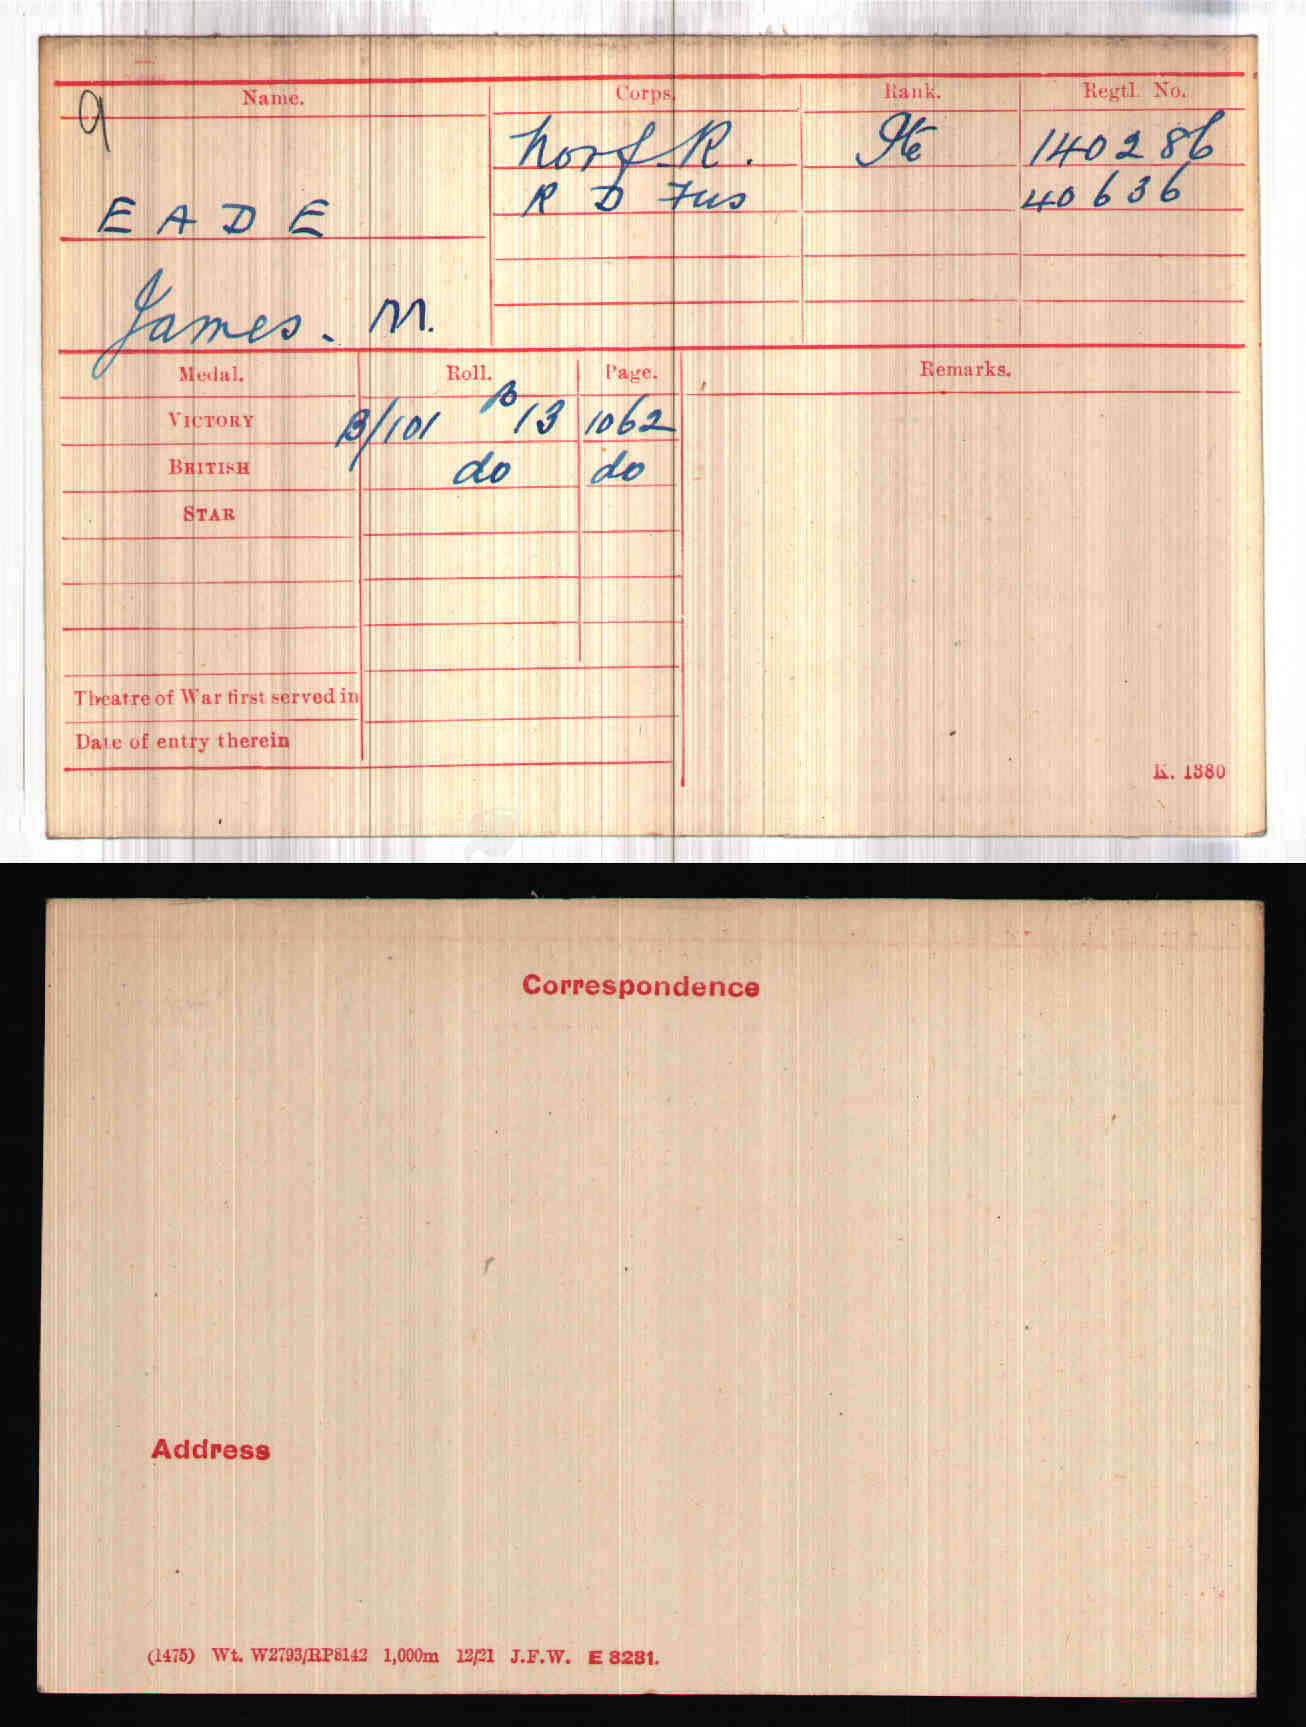 9
Name. Corps. Rank. Regtl. No.
Norf R. Pte 140286
R D Fus 40636
E A D E
James. M.
Medal. Roll. Page. Remarks.
VICTORY B/101 B13 1062
BRITISH do do
STAR
Theatre of War first served in
Date of entry therein
K. 1380
Correspondence
Address
(1475) Wt. W2793/RP8142 1,000m 12/21 J.F.W. E 8281.